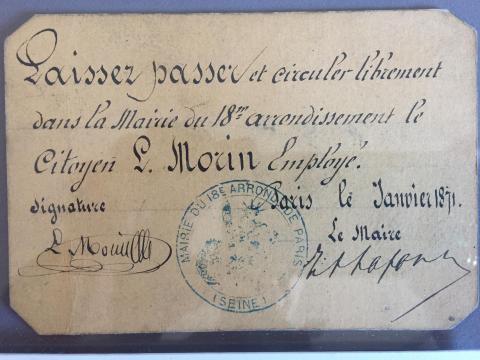 Laissez passer et circuler librement
dans la Mairie du 18me arrondissement le
Citoyen L. Morin Employé.
Paris le Janvier 1871.
signature
Le Maire
L. Morin
MAIRIE DU 18E ARRONDT DE PARIS
(SEINE)